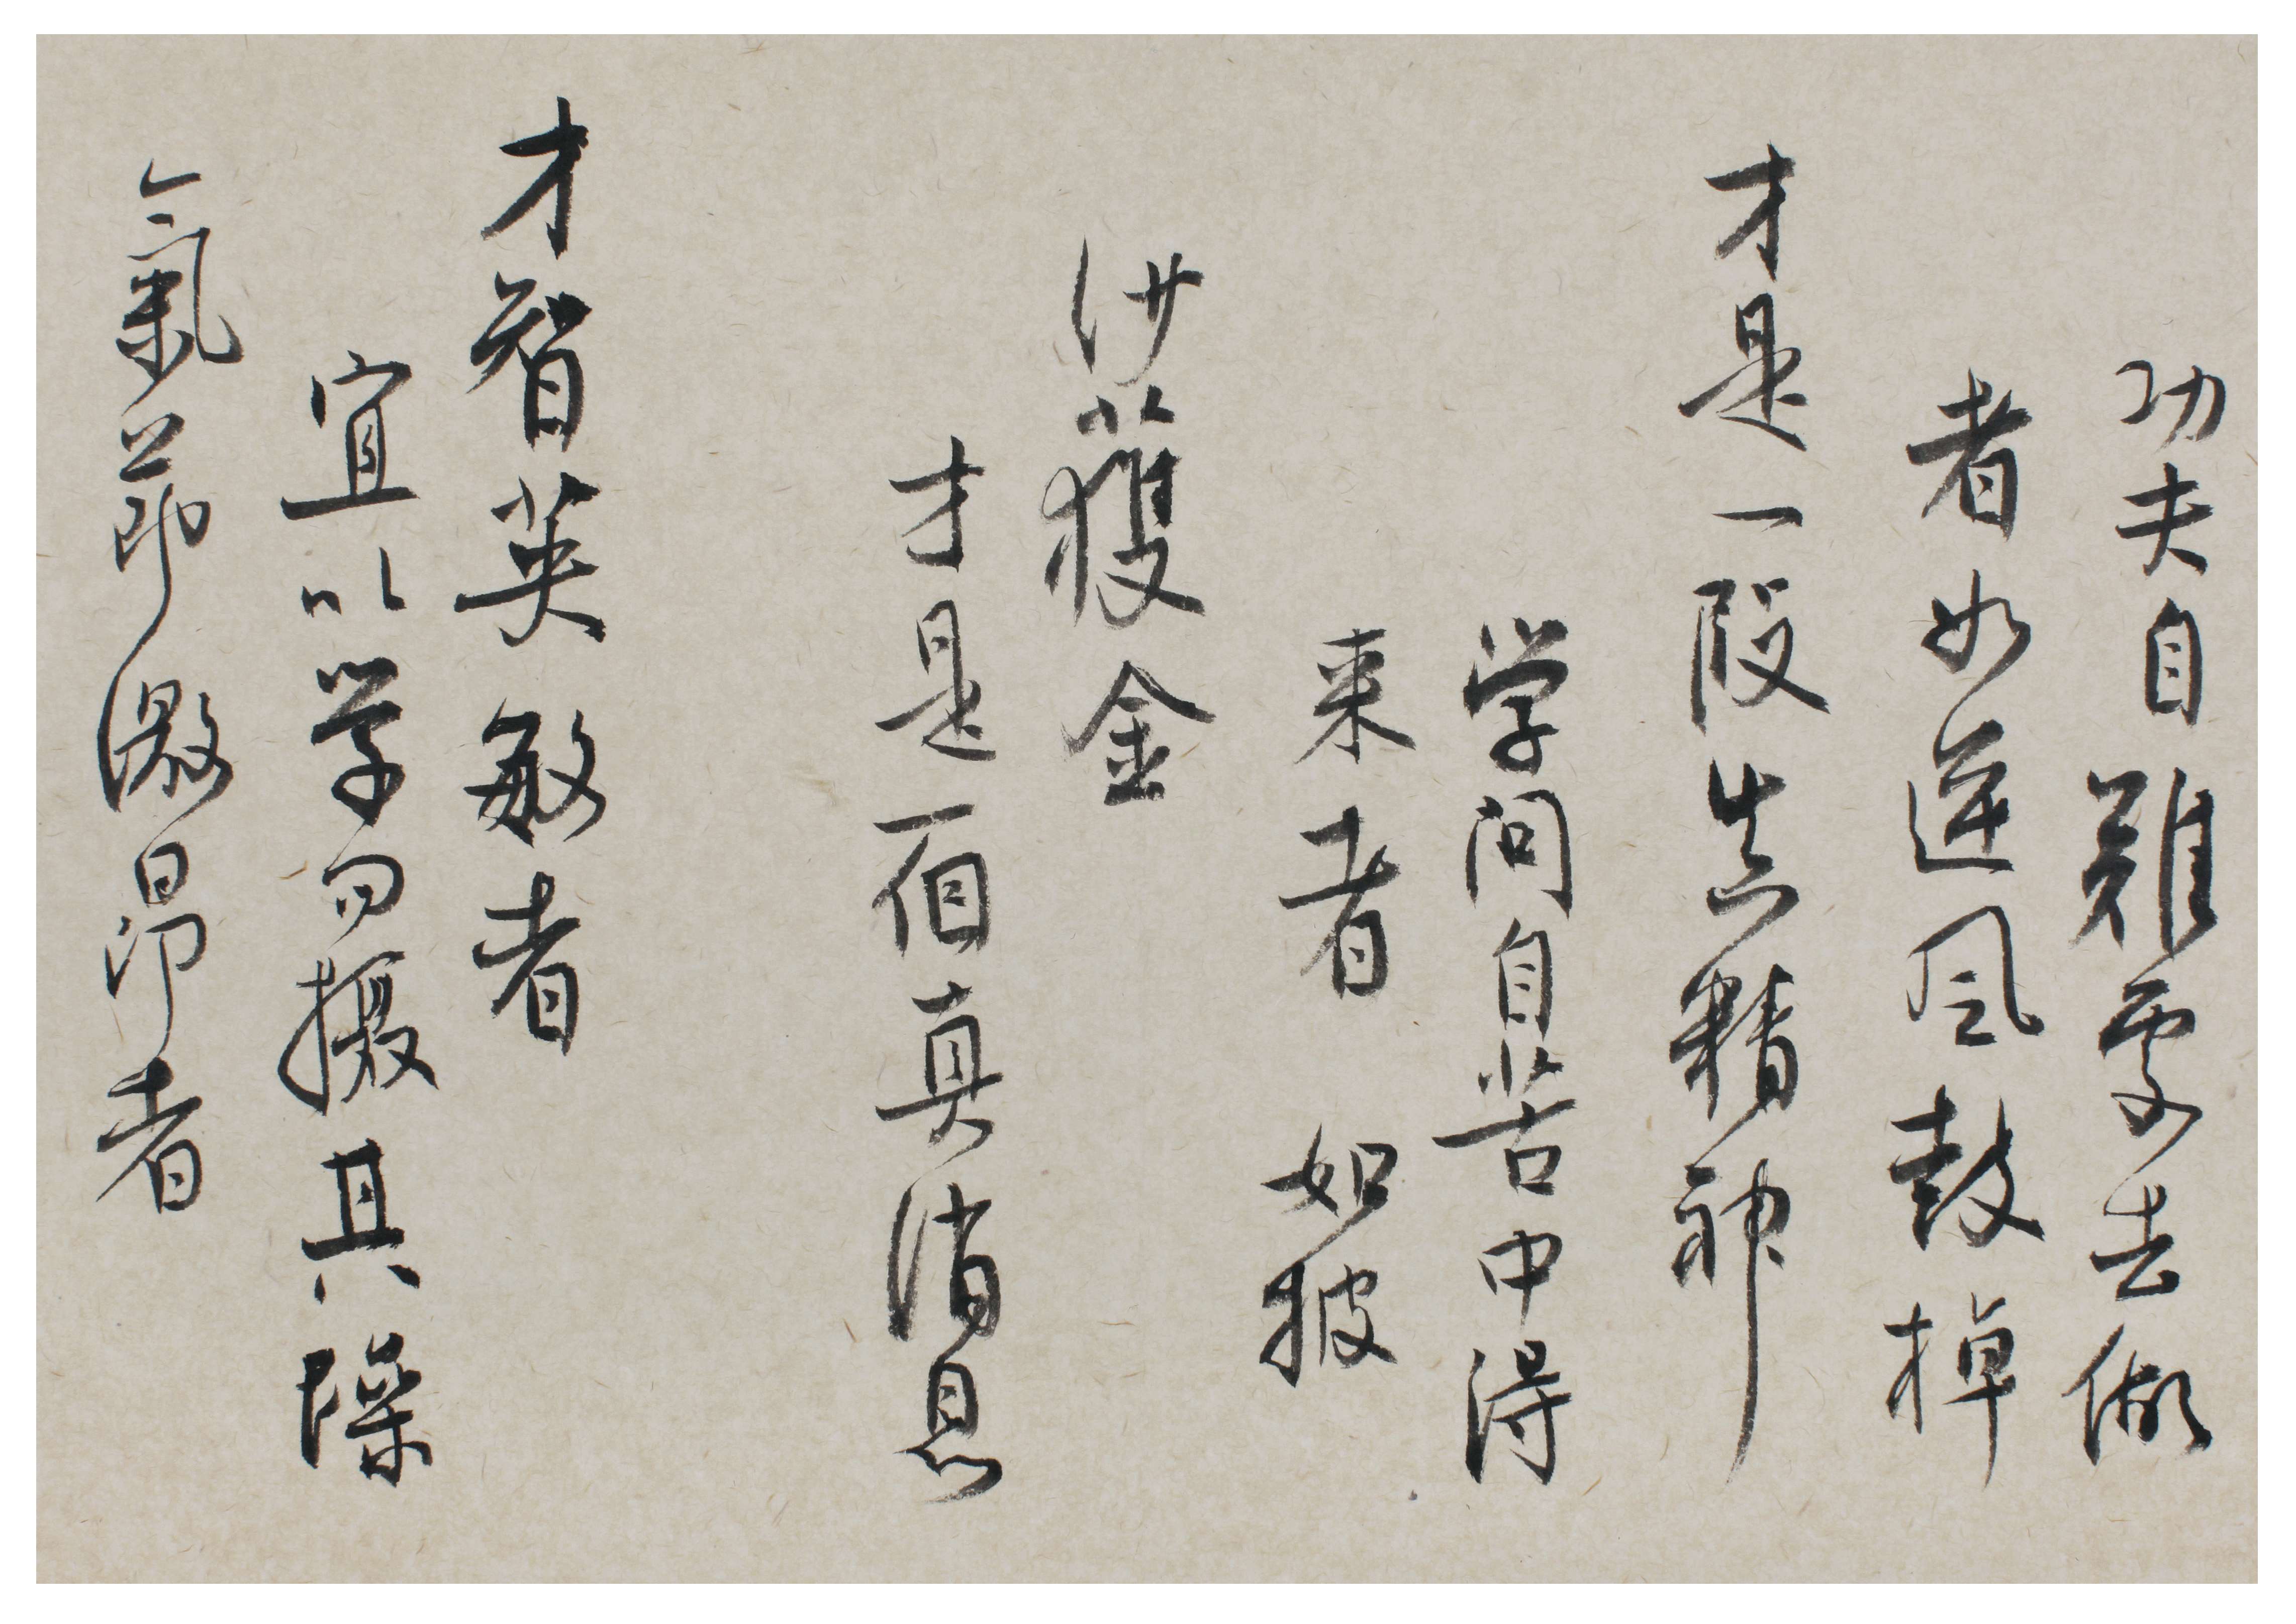 功夫自難處去做
者如逆风鼓棹
才是一段真精神
学问自苦中得
来者如披
沙獲金
才是一個真消息
才智英敏者
宜以学问摄其躁
氣节激昂者